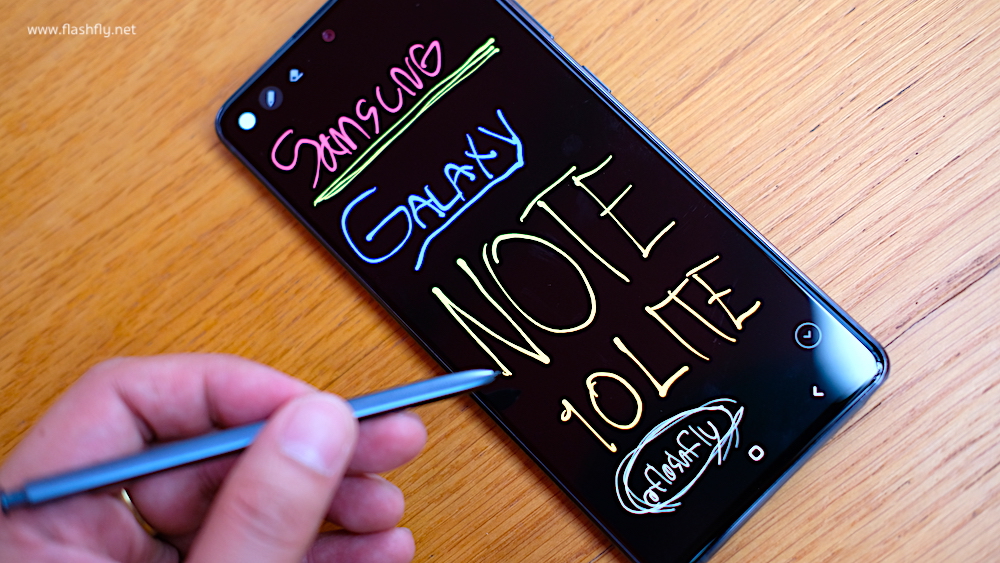 www.flashfly.net
SAMSUNG
GALAXY
NOTE
10 LITE
@flashfly